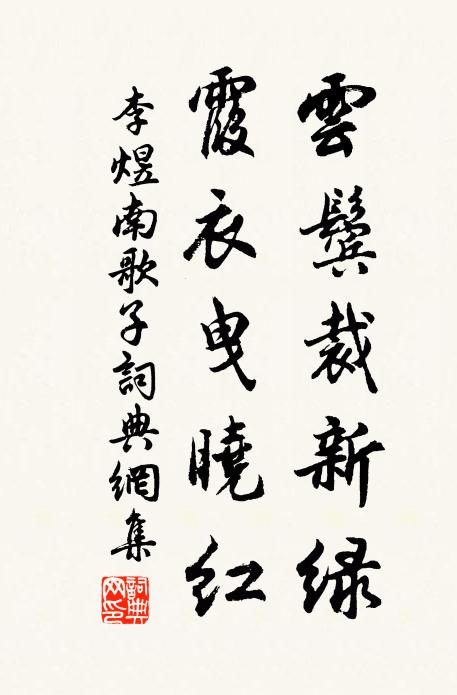 雲鬢裁新绿
霞衣曳曉红
李煜南歌子詞典網集
詞典网印